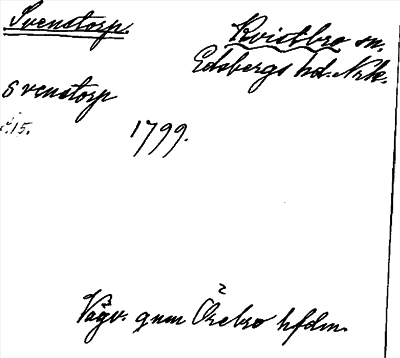 Svenstorp.
Kvistbro sn.
Edsbergs hd. Nrk.
Svenstorp
1799.
Vägv. gnm Örebro hfdm.